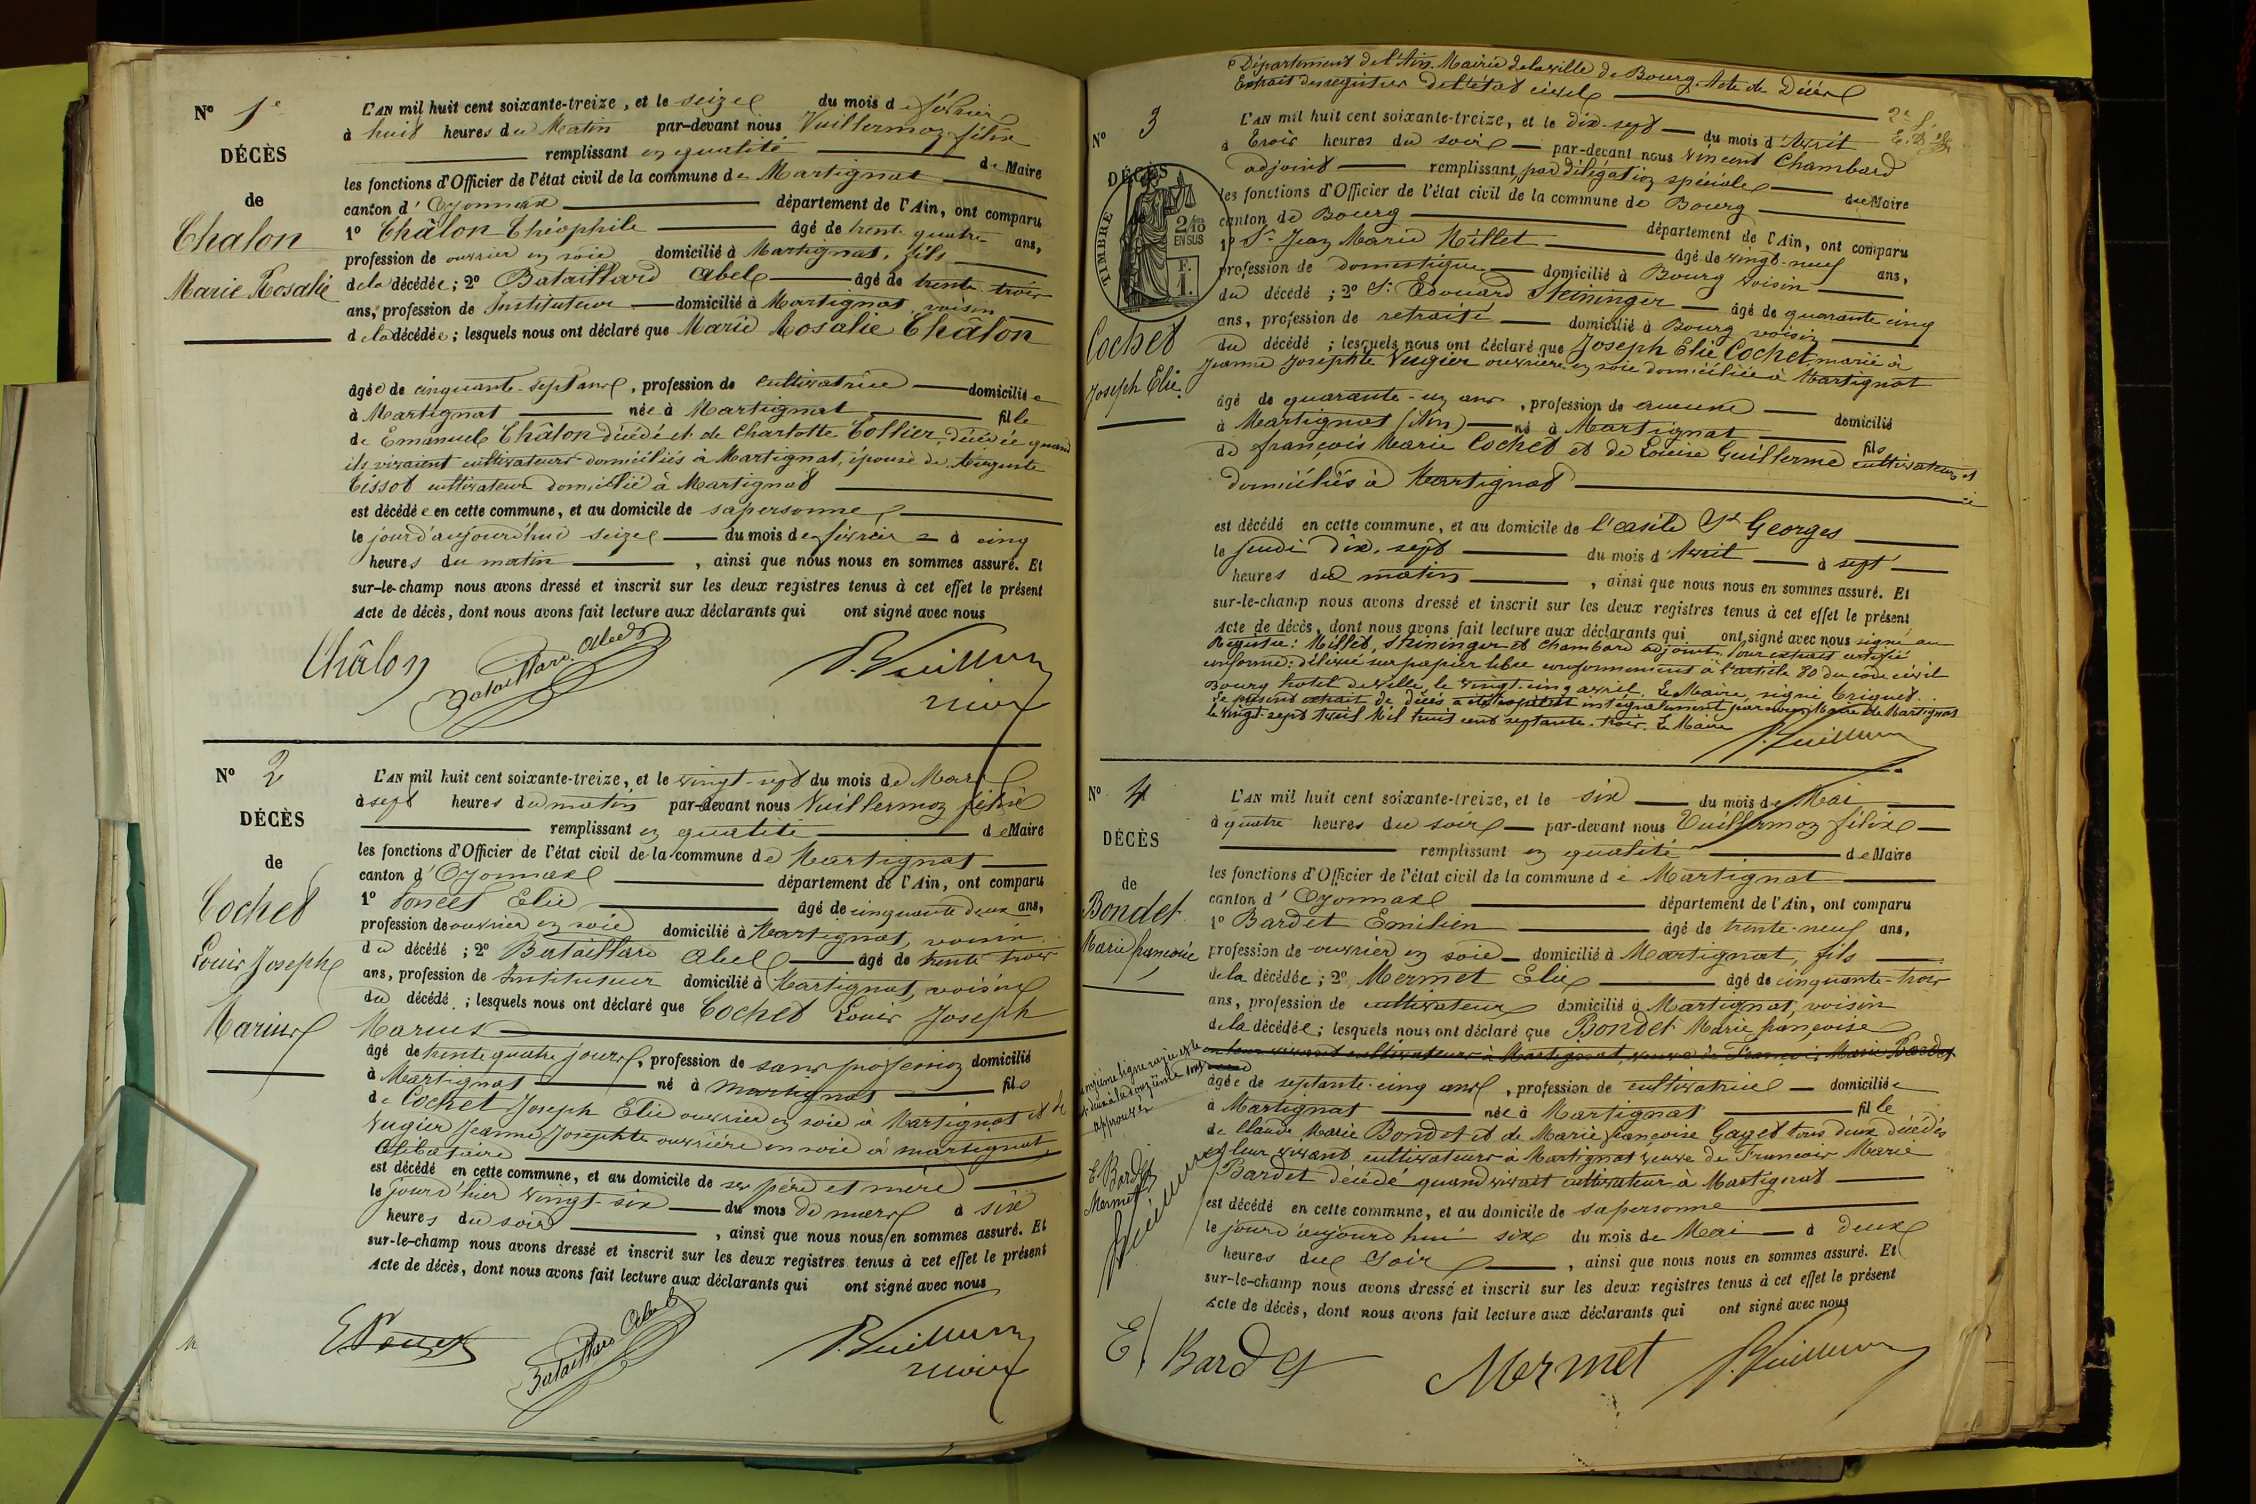 N° 1e
DÉCÈS
de
Chalon
Marie Rosalie
L'AN mil huit cent soixante-treize, et le seize du mois de février
à huit heures du Matin par-devant nous Vuillermoz félix
remplissant en qualité de Maire
les fonctions d'Officier de l'état civil de la commune de Martignat
canton d'Oyonnax département de l'Ain, ont comparu
1° Châlon Théophile âgé de trente quatre ans,
profession de ouvrier en soie domicilié à Martignat, fils
de la décédée; 2° Bataillard Abel âgé de trente trois
ans, profession de Instituteur domicilié à Martignat, voisin
de la décédée; lesquels nous ont déclaré que Marie Rosalie Châlon
âgée de cinquante-sept ans, profession de cultivatrice domiciliée
à Martignat née à Martignat fille
de Emanuel Châlon décédé et de Charlotte Tollier, décédée quand
ils vivaient cultivateurs domiciliés à Martignat, épouse de Auguste
Tissot cultivateur domicilié à Martignat
est décédée en cette commune, et au domicile de sa personne
le jour d'aujourd'hui seize du mois de février à cinq
heures du matin, ainsi que nous nous en sommes assuré. Et
sur-le-champ nous avons dressé et inscrit sur les deux registres tenus à cet effet le présent
Acte de décès, dont nous avons fait lecture aux déclarants qui ont signé avec nous
Châlon Bataillard Abel Vuillermoz
N° 2
DÉCÈS
de
Cochet
Louis Joseph
Marius
L'AN mil huit cent soixante-treize, et le vingt-sept du mois de Mars
à sept heures du matin par-devant nous Vuillermoz félix
remplissant en qualité de Maire
les fonctions d'Officier de l'état civil de la commune de Martignat
canton d'Oyonnax département de l'Ain, ont comparu
1° Poncet Elie âgé de cinquante deux ans,
profession de ouvrier en soie domicilié à Martignat, voisin
du décédé; 2° Bataillard Abel âgé de trente trois
ans, profession de Instituteur domicilié à Martignat, voisin
du décédé; lesquels nous ont déclaré que Cochet Louis Joseph
Marius
âgé de trente quatre jours, profession de sans profession domicilié
à Martignat né à Martignat fils
de Cochet Joseph Elie ouvrier en soie à Martignat et de
Vugier Jeanne Josephte ouvrière en soie à Martignat,
Célibataire
est décédé en cette commune, et au domicile de ses père et mère
le jour d'hier vingt-six du mois de mars à six
heures du soir, ainsi que nous nous en sommes assuré. Et
sur-le-champ nous avons dressé et inscrit sur les deux registres tenus à cet effet le présent
Acte de décès, dont nous avons fait lecture aux déclarants qui ont signé avec nous
E Poncet Bataillard Abel Vuillermoz
Département de l'Ain. Mairie de la ville de Bourg. Acte de Décès
Extrait des registres de l'état civil
N° 3
DÉCÈS
TIMBRE
2/10
EN SUS
F.
1.
Cochet
Joseph Elie
L'AN mil huit cent soixante-treize, et le dix-sept du mois d'Avril
à trois heures du soir par-devant nous Vincent Chambard
adjoint remplissant par délégation spéciale du Maire
les fonctions d'Officier de l'état civil de la commune de Bourg
canton de Bourg département de l'Ain, ont comparu
1° Sr Jean Marie Millet âgé de vingt-neuf ans,
profession de domestique domicilié à Bourg voisin
du décédé; 2° Sr Edouard Steininger âgé de quarante cinq
ans, profession de retraité domicilié à Bourg voisin
du décédé; lesquels nous ont déclaré que Joseph Elie Cochet marié à
Jeanne Josephte Vugier ouvrière en soie domiciliée à Martignat
âgé de quarante-un ans, profession de aucune domicilié
à Martignat (Ain) né à Martignat fils
de françois Marie Cochet et de Louise Guillerme cultivateurs et
domiciliés à Martignat
est décédé en cette commune, et au domicile de l'asile St Georges
le jeudi dix-sept du mois d'Avril à sept
heures du matin, ainsi que nous nous en sommes assuré. Et
sur-le-champ nous avons dressé et inscrit sur les deux registres tenus à cet effet le présent
Acte de décès, dont nous avons fait lecture aux déclarants qui ont signé avec nous signé au
Registre: Millet, Steininger et Chambard adjoint. Pour extrait certifié
conforme: délivré sur papier libre conformément à l'article 80 du code civil
Bourg hotel de ville, le vingt-cinq avril. Le Maire, signé Briguet.
Le présent extrait de décès a été copié intégralement par nous Maire de Martignat
le vingt-sept Avril Mil huit cent septante-trois. Le Maire
Vuillermoz
N° 4
DÉCÈS
de
Bondet
Marie françoise
L'AN mil huit cent soixante-treize, et le six du mois de Mai
à quatre heures du soir par-devant nous Vuillermoz félix
remplissant en qualité de Maire
les fonctions d'Officier de l'état civil de la commune de Martignat
canton d'Oyonnax département de l'Ain, ont comparu
1° Bardet Emilien âgé de trente-neuf ans,
profession de ouvrier en soie domicilié à Martignat, fils
de la décédée; 2° Mermet Elie âgé de cinquante-trois
ans, profession de cultivateur domicilié à Martignat, voisin
de la décédée; lesquels nous ont déclaré que Bondet Marie françoise
en leur vivant cultivateurs à Martignat, veuve de François Marie Bardet
âgée de septante-cinq ans, profession de cultivatrice domiciliée
à Martignat née à Martignat fille
de Claude Marie Bondet et de Marie françoise Gayet tous deux décédés
en leur vivant cultivateurs à Martignat veuve de François Marie
Bardet décédé quand vivait cultivateur à Martignat
est décédé en cette commune, et au domicile de sa personne
le jour d'aujourd'hui six du mois de Mai à deux
heures du soir, ainsi que nous nous en sommes assuré. Et
sur-le-champ nous avons dressé et inscrit sur les deux registres tenus à cet effet le présent
Acte de décès, dont nous avons fait lecture aux déclarants qui ont signé avec nous
onzième ligne rayée
approuvés
E. Bardet
Mermet
E. Bardet Mermet Vuillermoz